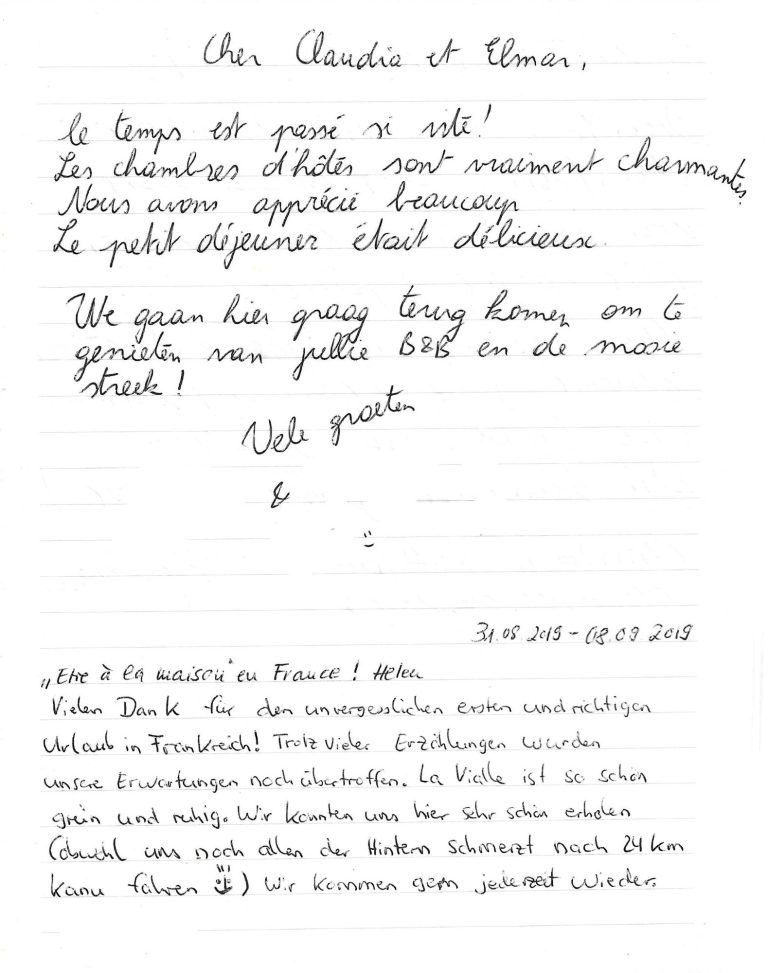 Cher Claudia et Elmar,
le temps est passé si vite!
Les chambres d'hôtes sont vraiment charmantes.
Nous avons apprécié beaucoup
Le petit déjeuner était délicieux.
We gaan hier graag terug komen om te
genieten van jullie B&B en de mooie
streek!
Vele groeten
&
31.08.2019 - 08.09.2019
„Etre à la maison" en France! Helen
Vielen Dank für den unvergesslichen ersten und richtigen
Urlaub in Frankreich! Trotz vieler Erzählungen wurden
unsere Erwartungen noch übertroffen. La Vialle ist so schön
grün und ruhig. Wir konnten uns hier sehr schön erholen
(obwohl uns noch allen der Hintern schmerzt nach 24 km
Kanu fahren) Wir kommen gern jederzeit wieder.